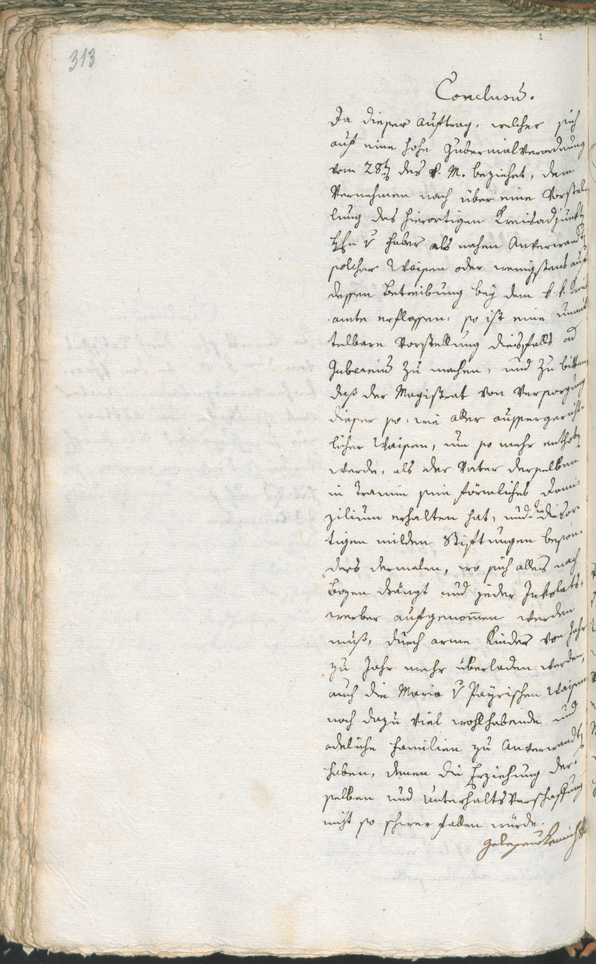 313
Conclusum.
Da dieser Auftrag, welcher sich
auf eine hohe Gubernialverordnung
vom 28t. des v. M. beziehet, dem
Vernehmen nach über eine Vorstel
lung des hierortigen Kreisadjunkt
Hn v als nahen Anverwand
solcher Waisen oder wenigstens auf
dessen Betreibung bey dem k. k. Kreis
amte erflossen, so ist eine unmit
telbare Vorstellung diesfalls ad
Gubernium zu machen, und zu bitten
daß der Magistrat von Versorgung
dieser so, wie aller aussergericht-
licher Waisen, um so mehr enthoben
werde, als der Vater derselben
in Tramin sein förmliches Domi-
zilium erhalten hat, und die hior
tigen milden Stiftungen beson-
ders dermalen, wo sich alles nach
Bozen drängt und jeder Inkolats-
werber aufgenommen werden
muß, durch arme Kinder von Jahr
zu Jahr mehr überladen werden,
auch die Maria v Payrischen Waisen
noch dazu viel wohlhabende und
adeliche Familien zu Anverwandte
haben, denen die Erziehung der-
selben und Unterhaltsverschaffung
nicht so schwer fallen würde.